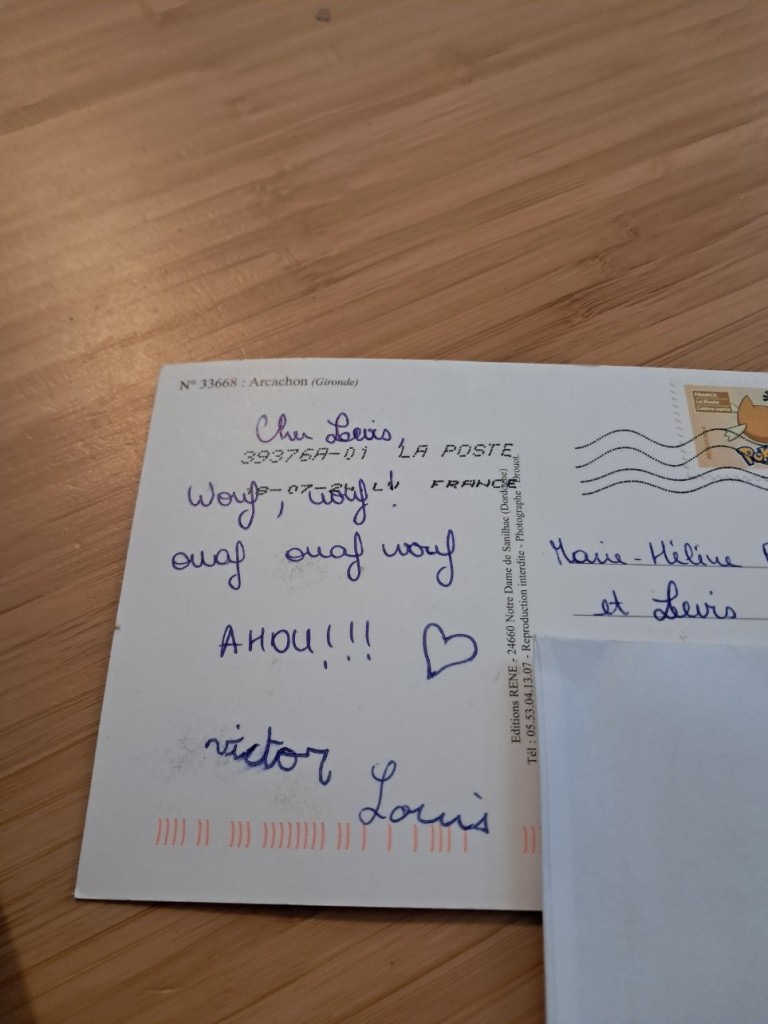 N° 33668 : Arcachon (Gironde)
Cher Levis,
39376A-01 LA POSTE
FRANCE
Wouf, wouf!
ouaf ouaf wouf
AHOU!!!
victor
Louis
Editions RENE - 24660 Notre Dame de Sanilhac (Dordogne)
Tél : 05.53.04.13.07 - Reproduction interdite - Photographe : Drouot.
FRANCE
La Poste
Lettre verte
Marie-Héline
et Levis